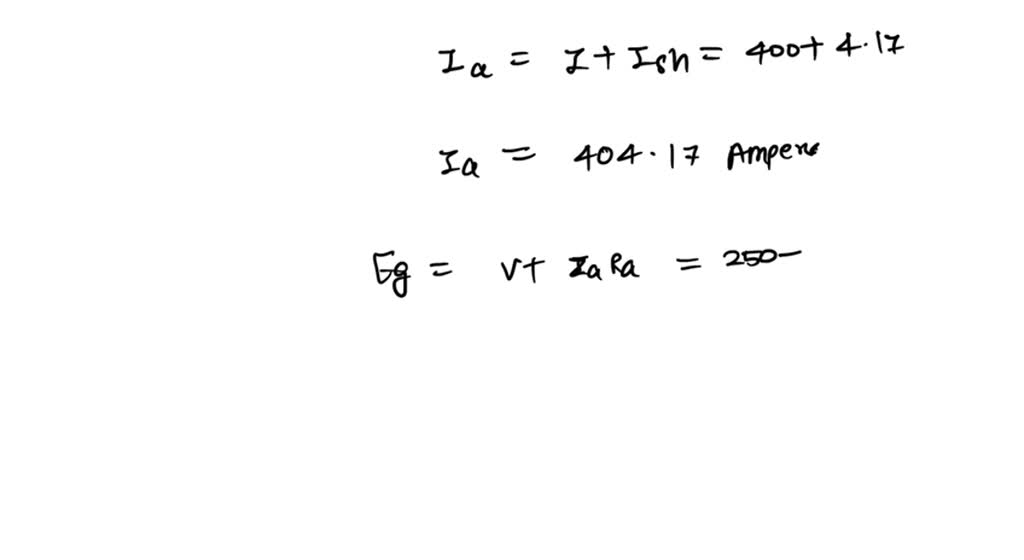 Ia = I + Ish = 400 + 4.17
Ia = 404.17 Ampere
Eg = V + IaRa = 250-